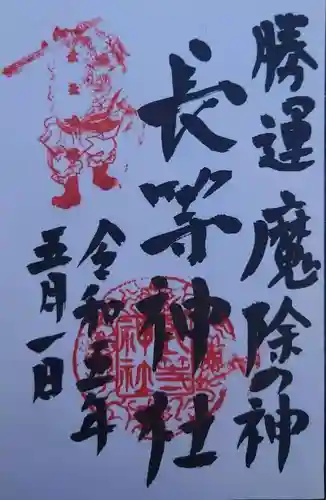 勝運 魔除の神
長等神社
令和五年
五月一日